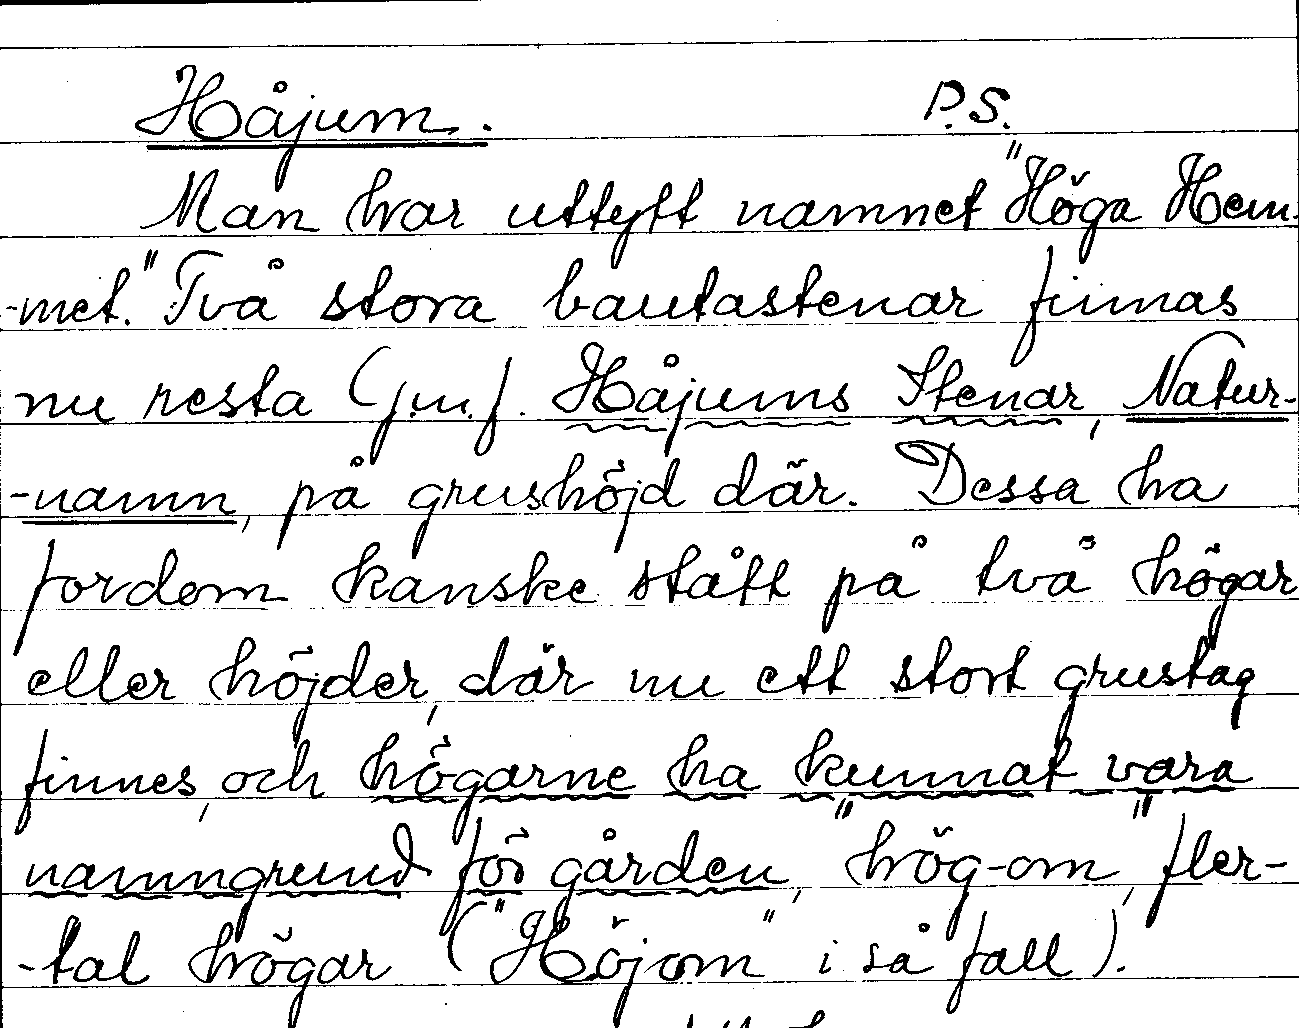 Håjum. P.S.
Man har uttytt namnet "Höga Hem-
-met." Två stora bautastenar finnas
nu resta (jmf. Håjums Stenar, Natur-
-namn, på grushöjd där. Dessa ha
fordom kanske stått på två högar
eller höjder, där nu ett stort grustag
finnes, och högarne ha kunnat vara
namngrund för gården, "hög-om", fler-
-tal högar ("Höjom" i så fall).